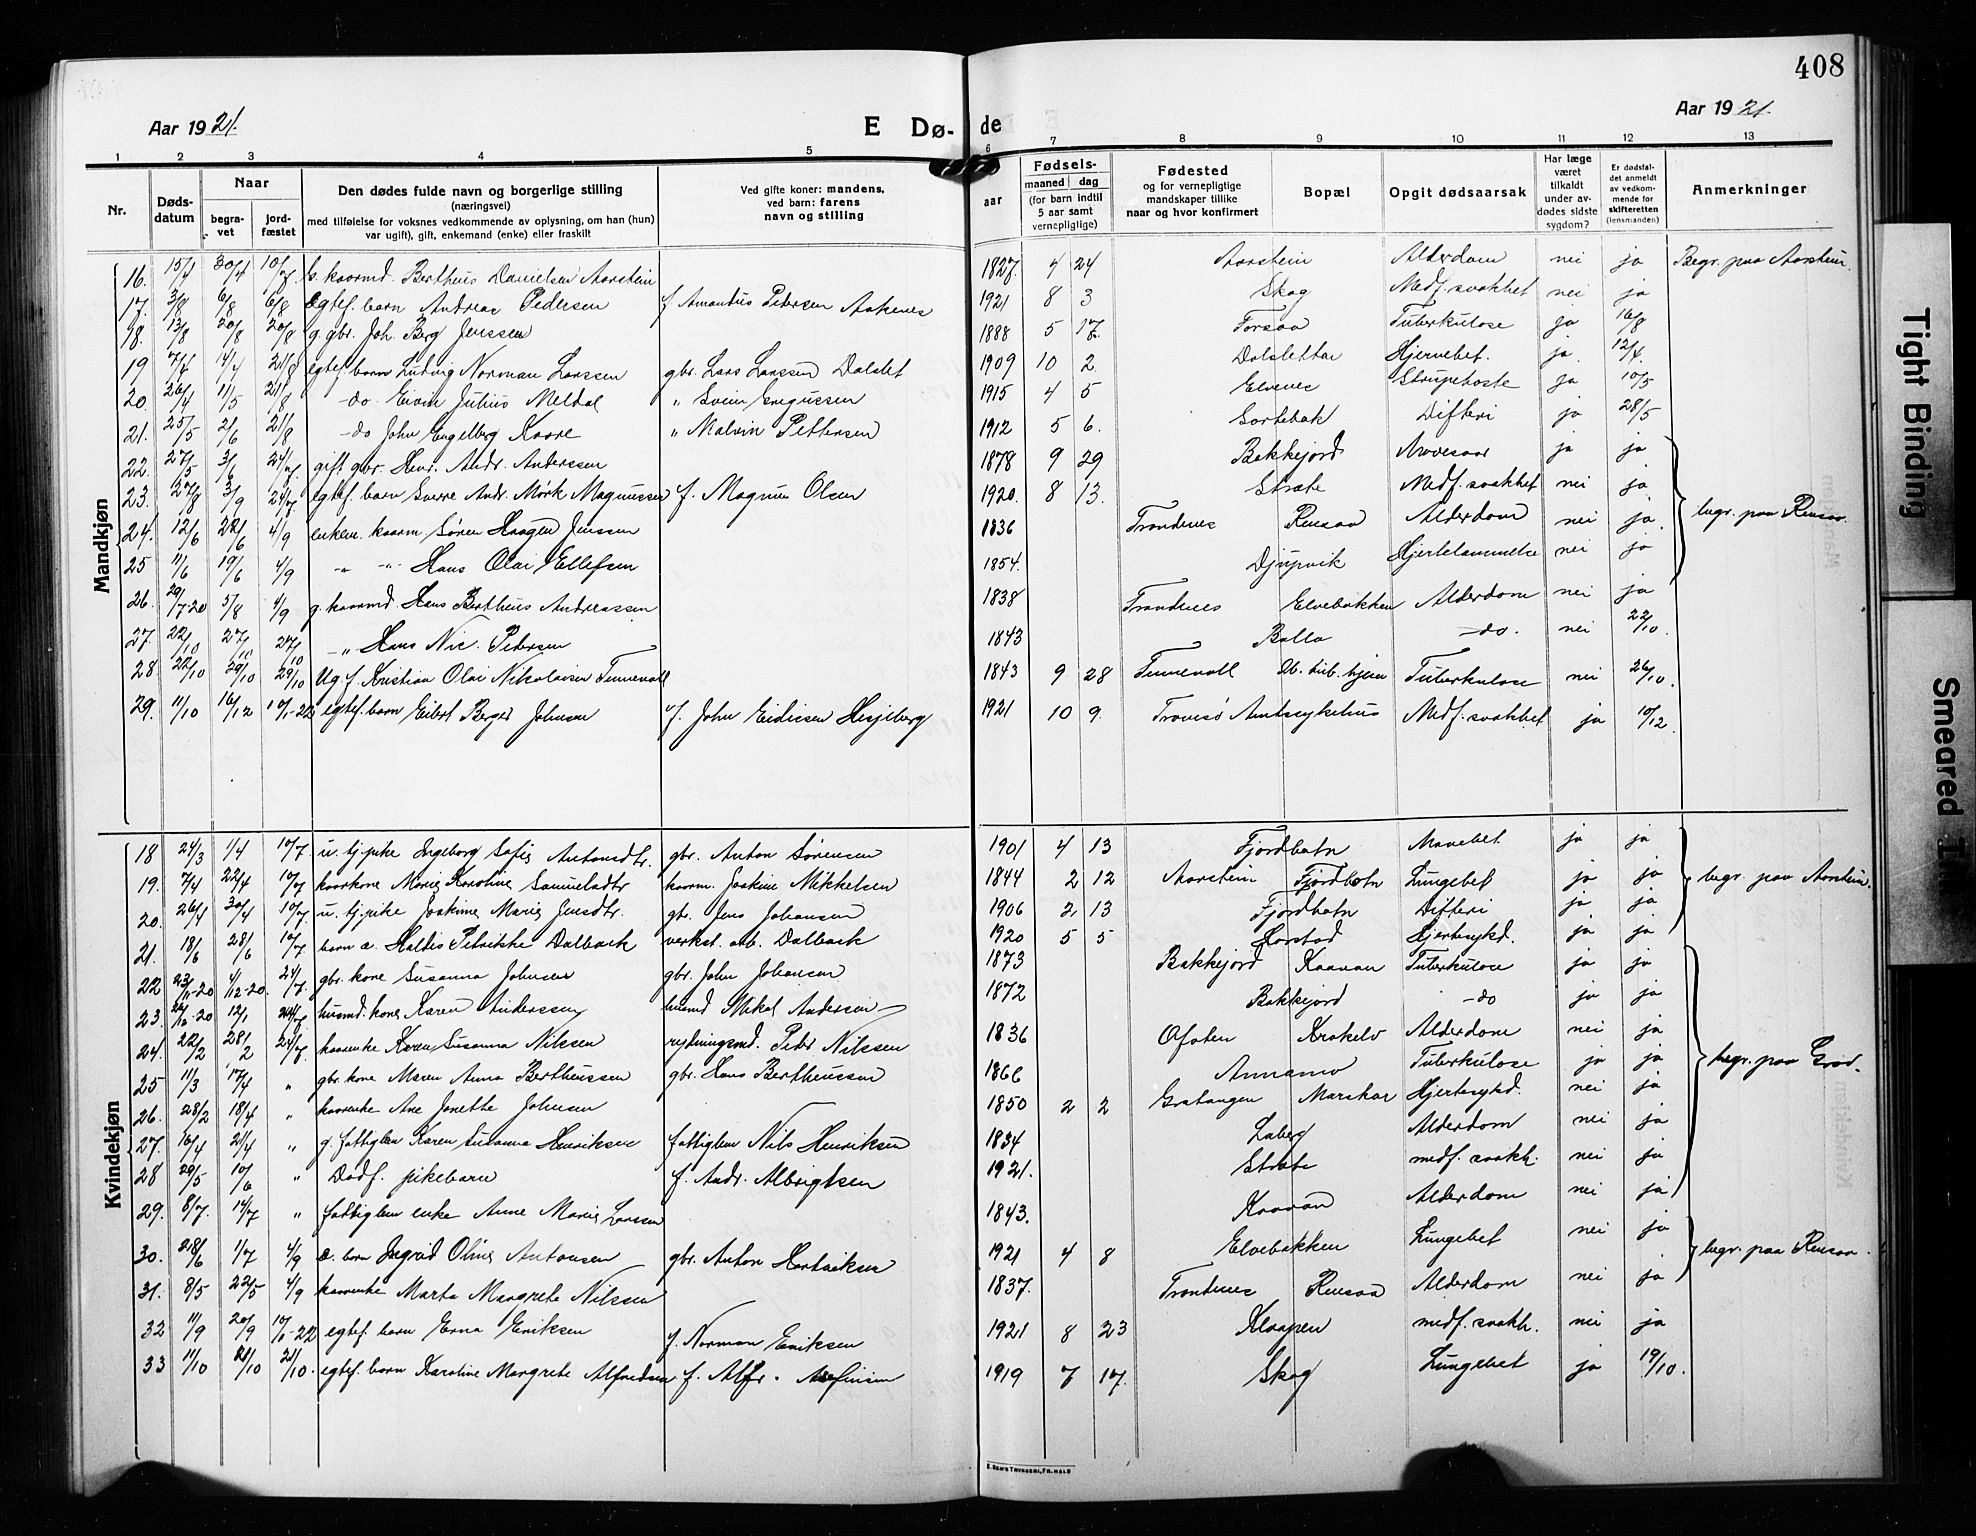 408
Aar 1921.
E Dø- de
Aar 1921.
1 2 3 4 5 6 7 8 9 10 11 12 13
Nr.
Døds-datum
Naar
begra-vet
jord-fæstet
Den dødes fulde navn og borgerlige stilling
(næringsvei)
med tilføielse for voksnes vedkommende av oplysning, om han (hun)
var ugift), gift, enkemand (enke) eller fraskilt
Ved gifte koner: mandens,
ved barn: farens
navn og stilling
Fødsels-
aar
maaned dag
(for barn indtil
5 aar samt
vernepligtige)
Fødested
og for vernepligtige
mandskaper tillike
naar og hvor konfirmert
Bopæl
Opgit dødsaarsak
Har læge
været
tilkaldt
under av-
dødes sidste
sygdom?
Er dødsfal-
det anmeldt
av vedkom-
mende for
skifteretten
(lensmanden)
Anmerkninger
Mandkjøn
16. 15/4 30/4 10/7 g. kaarmd. Berthus Danielsen Aarstein 1827. 4 24 Aarstein Alderdom nei ja Begr. paa Aarstein.
17. 3/8 6/8 6/8 Egtef. barn Andreas Pedersen f. Amandus Petersen Aakenes 1921 8 3 Skog Medf. svakhet nei ja
18. 13/8 20/8 20/8 g. gbr. Joh. Berg Jenssen 1888 5 17. Forsaa Tuberkulose ja 16/8
19 7/4 14/4 21/8 egtef. barn Ludvig Norman Larssen gbr. Lars Larssen Dalslet 1909 10 2. Dalslettar Hjernebet. ja 12/4.
20. 26/4 11/5 21/8 -do- Eivin Julius Meldal " Svein 1915 4 5 Elvenes Strupehoste ja 10/5
21. 25/5 2/6 21/8 -do John Engelberg Kaare " Malvin Pettersen 1912 5 6. Sortebak Difteri ja 28/5
22. 27/5 3/6 24/7. gift gbr. Henr. Andr. Anderssen 1878 9 29 Bakkejord ja ja
23. 27/8 3/9 24/7 egtef. barn Sverre Andr. Mørk Magnussen f. Magnus Olsen 1920. 8 13. Strate Medf. svakhet nei ja begr. paa Rensaa.
24. 12/6 22/6 4/9 enkem. kaarm Søren Haagen Jenssen 1836 Trondenes Rensaa Alderdom nei ja.
25 11/6 19/6 4/9 -"- -"- Hans Olai Ellefsen 1854. Djupvik Hjertelammelse nei ja
26. 29/7-20 5/8 4/9 g. kaarmd. Hans Berthus Andreassen 1838 Trondenes Elvebakken Alderdom nei ja
27. 22/10 27/10 27/10 -" Hans Nic. Petersen 1843 Balla -do. nei 22/10.
28 22/10 29/10 29/10 Ug. f. Kristian Olai Nikolaisen Tennevoll 1843 9 28 Tennevoll Tuberkulose nei 26/10.
29. 11/10 16/12 10/1-22 egtef. barn Eilert Berger Johnsen f. John Eidissen Hesjeberg 1921 10 9. Tromsø Amtssykehus Medf. svakhet ja 10/12.
Kvindekjøn
18 24/3 1/4 10/7. u. tj.pike Ingeborg Sofie Antonsdtr. gbr. Anton Sørensen 1901 4 13 Fjordbotn Mavebet ja ja
19. 7/4 22/4 10/7 kaarkone Marie Karoline Samuelsdtr kaarm. Joakim Mikkelsen 1844 2 12 Aarstein Fjordbotn Lungebet ja ja begr. paa Aarstein.
20. 26/4 30/4 10/7 u. tj.pike Joakime Marie Jensdtr. gbr. Jens Johansen 1906 2, 13 Fjordbotn Difteri ja ja
21. 18/6 28/6 10/7 barn æ. Haldis Petrikke Dalback verkst. arb. Dalback 1920 5 5 Harstad Hjertesykd. ja ja
22 23/11-20 4/12-20. 24/7. gbr. kone Susanna Johnsen gbr. John Johansen 1873 Bakkejord Kaavan Tuberkulose ja ja
23. 26/12-20 12/1 24/7 husmd. kone Karen Anderssen husmd Mikal Anderssen 1872 Bakkejord -do ja ja
24. 22/2 28/2 24/7 kaarenke Karen Susanna Nilssen rydningsmd. Peder Nilssen 1836 Ofoten Krakelv Alderdom nei ja
25 11/3 17/4 " gbr. kone Maren Anna Bertheussen gbr. Hans Bertheussen 1866 Annamo Tuberkulose ja ja begr. paa Grov.
26. 28/2 18/4 " kaarenke Ane Jonette Johnsen 1850 2 2 Gratangen Marskar Hjertesykd. nei ja
27. 16/4 21/4 " g. fattiglem Karen Susanna Henriksen fattiglem Nils Henriksen 1834 Laberg Alderdom nei ja
28 29/5 10/6 " Dødf. pikebarn f. Andr. Albrigtsen 1921. Strate medf. svakh. nei ja
29. 8/7. 14/7 " fattiglem enke Anne Marie Larssen 1843. Kaavan Alderdom nei ja
30. 28/6 1/7 4/9 æ. barn Ingrid Oline Antonsen gbr. Anton Hartviksen 1921 4 8 Elvebakken Lungebet nei ja begr. paa Rensaa.
31. 8/5 22/5 4/9 kaarenke Marta Margrete Nilssen 1837. Trondenes Rensaa Alderdom nei ja
32 11/9 20/9 10/1-22 egtef. barn Erna Eriksen f. Norman Eriksen 1921 8 23 Kloapen medf. svakh. nei ja
33 11/10 21/10 21/10. egtef. barn Karoline Margrete Alfredsen f. Alfr. 1919 7 17. Skog Lungebet ja 19/10.
E. SEM'S TRYKKERI, FR. HALD
Tight Binding
Smeared